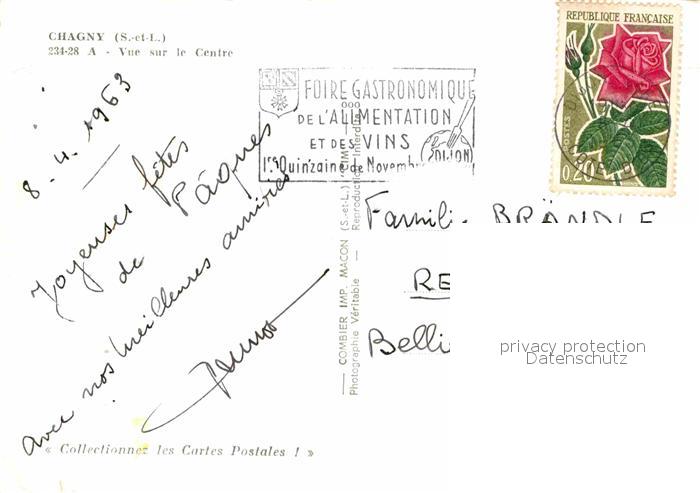 CHAGNY (S.-et-L.)
234-28 A - Vue sur le Centre
8-4-1963
Joyeuses fêtes
de Pâques
avec nos meilleures amitiés
« Collectionnez les Cartes Postales ! »
FOIRE GASTRONOMIQUE
DE L'ALIMENTATION
ET DES VINS
1re Quinzaine de Novembre
DIJON
COMBIER IMP. MACON (S.-et-L.) "CIM"
Photographie Véritable — Reproduction Interdite
REPUBLIQUE FRANÇAISE
POSTES
0,20
Famili BRÄNDLE
RE
Belli
privacy protection
Datenschutz